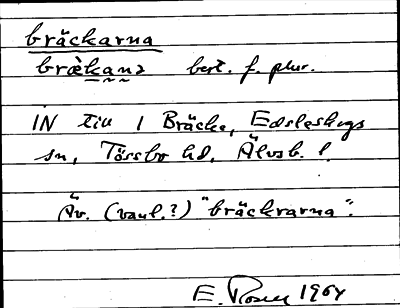 bräckarna
brækana best. f. plur.
IN till 1 Bräcke, Edsleskogs
sn, Tössbo hd, Älvsb. l.
Äv. (vanl.?) "bräckrarna".
E. Rosell 1964